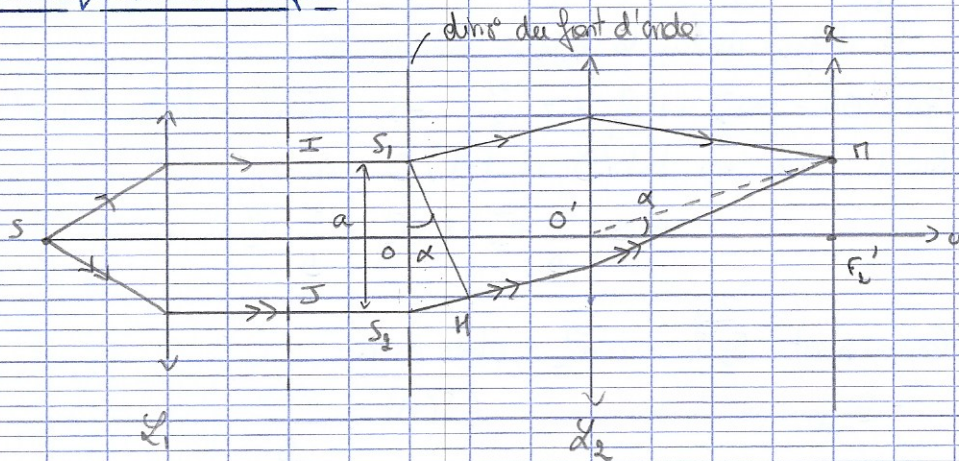 divis° du front d'onde
x
I
S₁
M
S
a
O
α
O'
α
J
F₂'
S₂
H
ℒ₁
ℒ₂